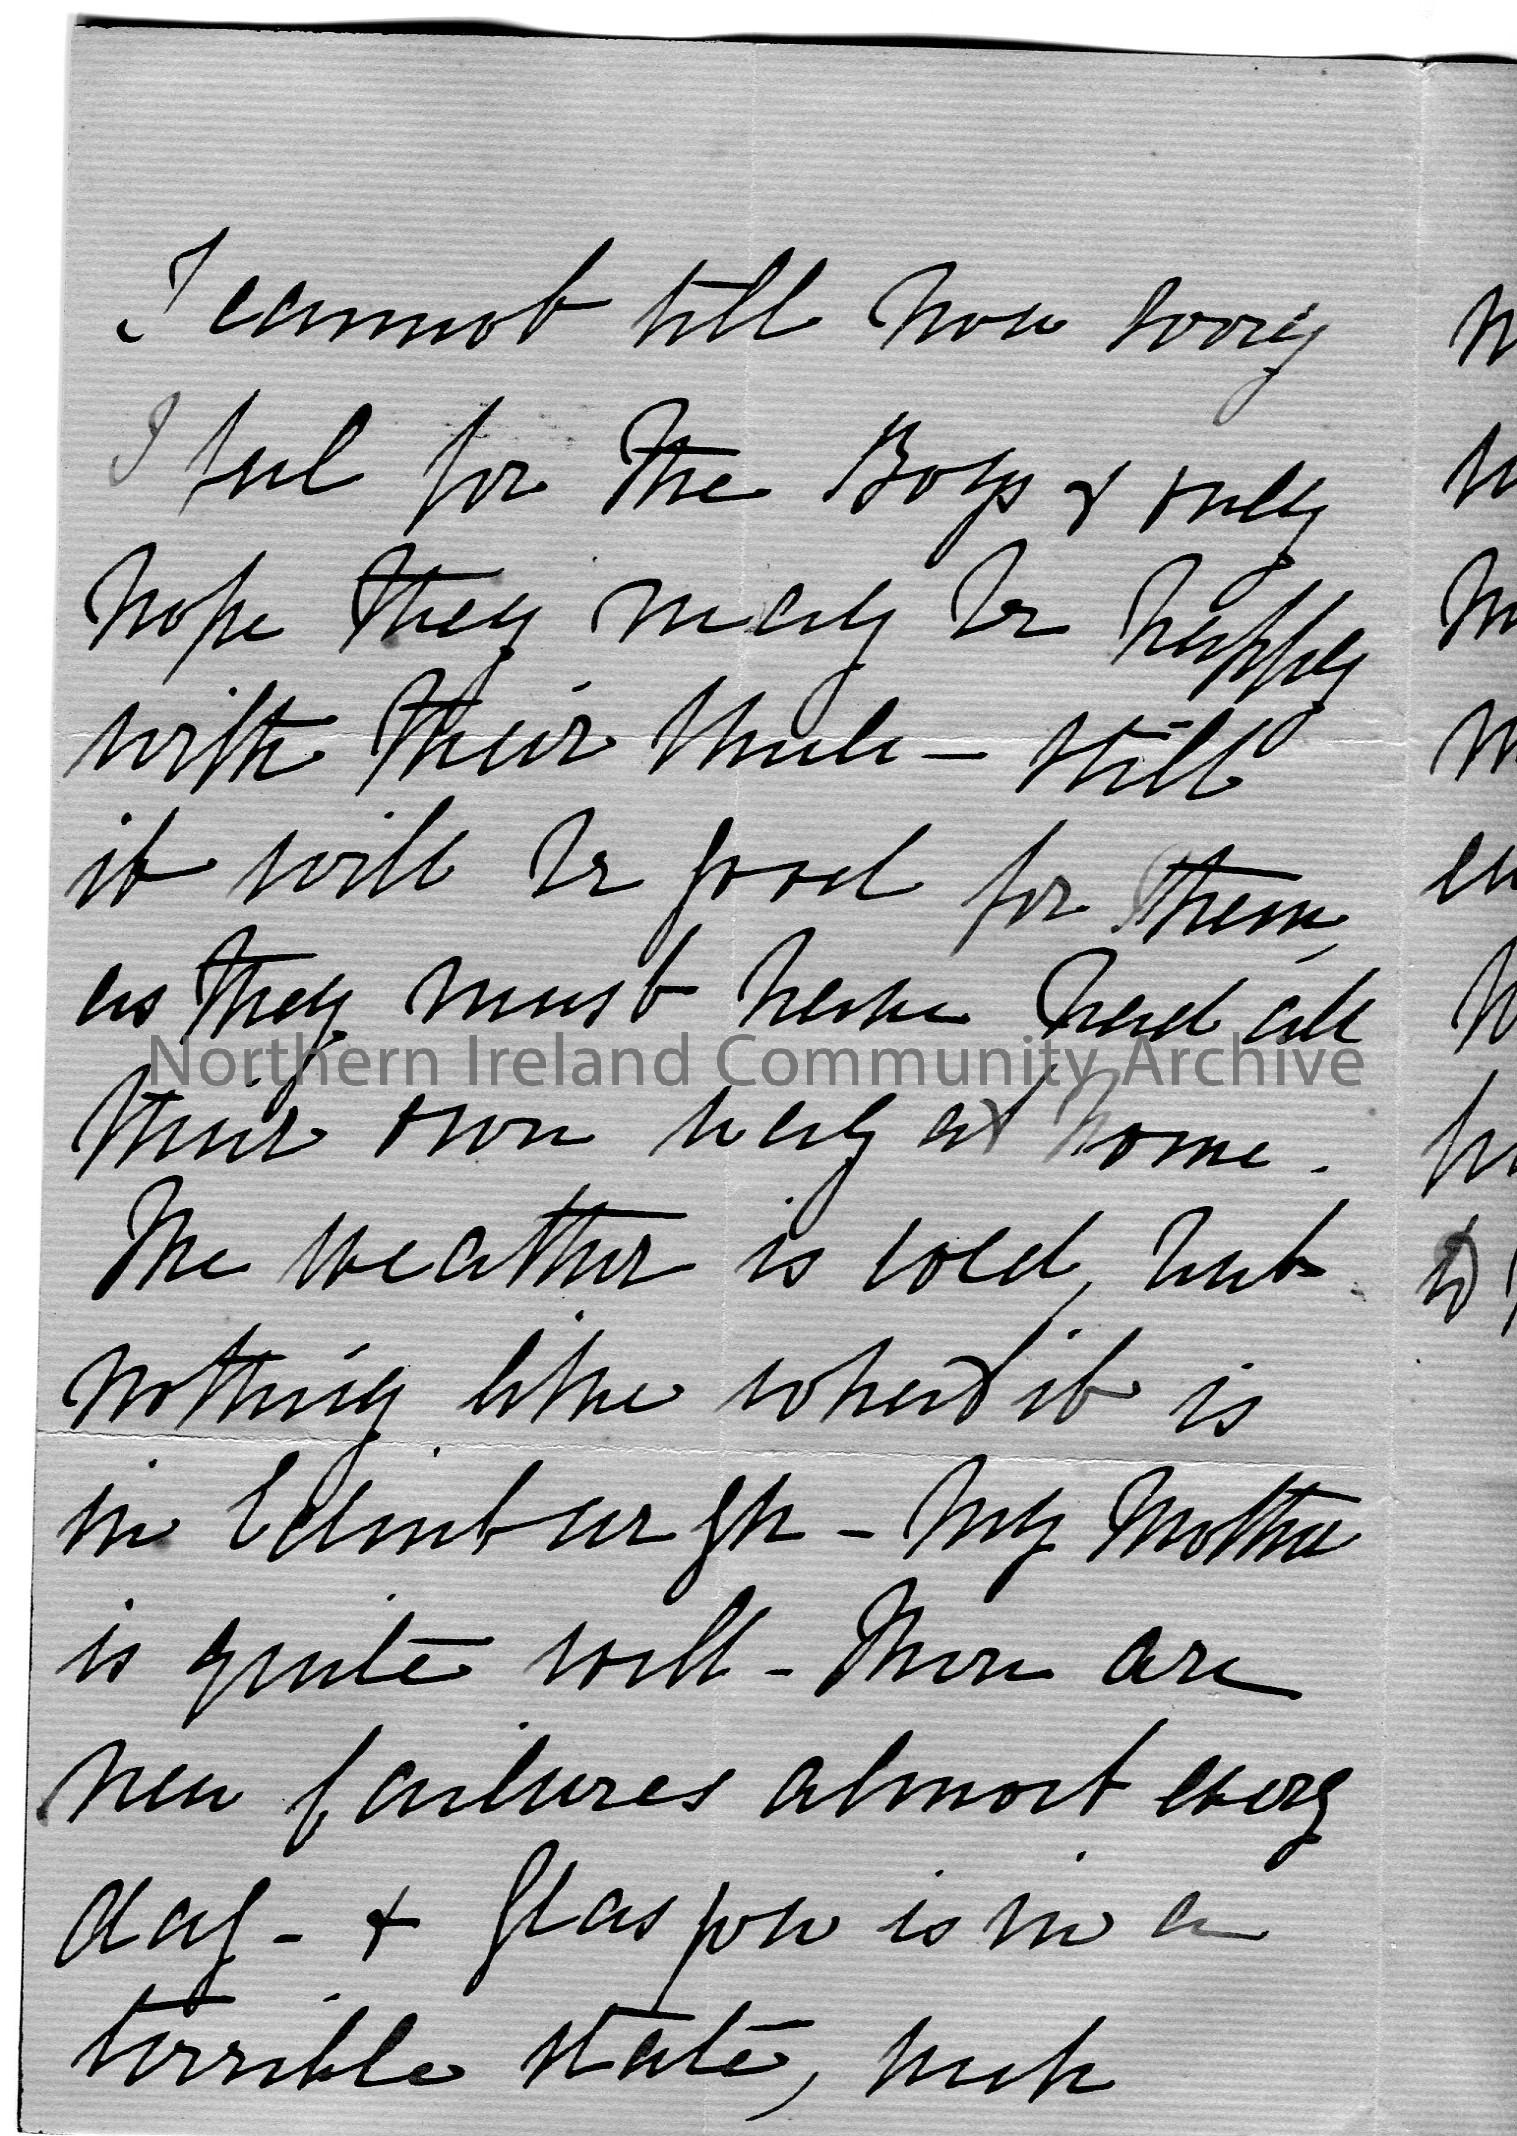 I cannot tell how sorry
I feel for the Boys & only
hope they may be happy
with their Uncle – still
it will be good for them,
as they must have had all
their own way at home.
The weather is cold, but
nothing like what it is
in Edinburgh – My Mother
is quite well – There are
new failures almost every
day – & Glasgow is in a
terrible state, such
Northern Ireland Community Archive